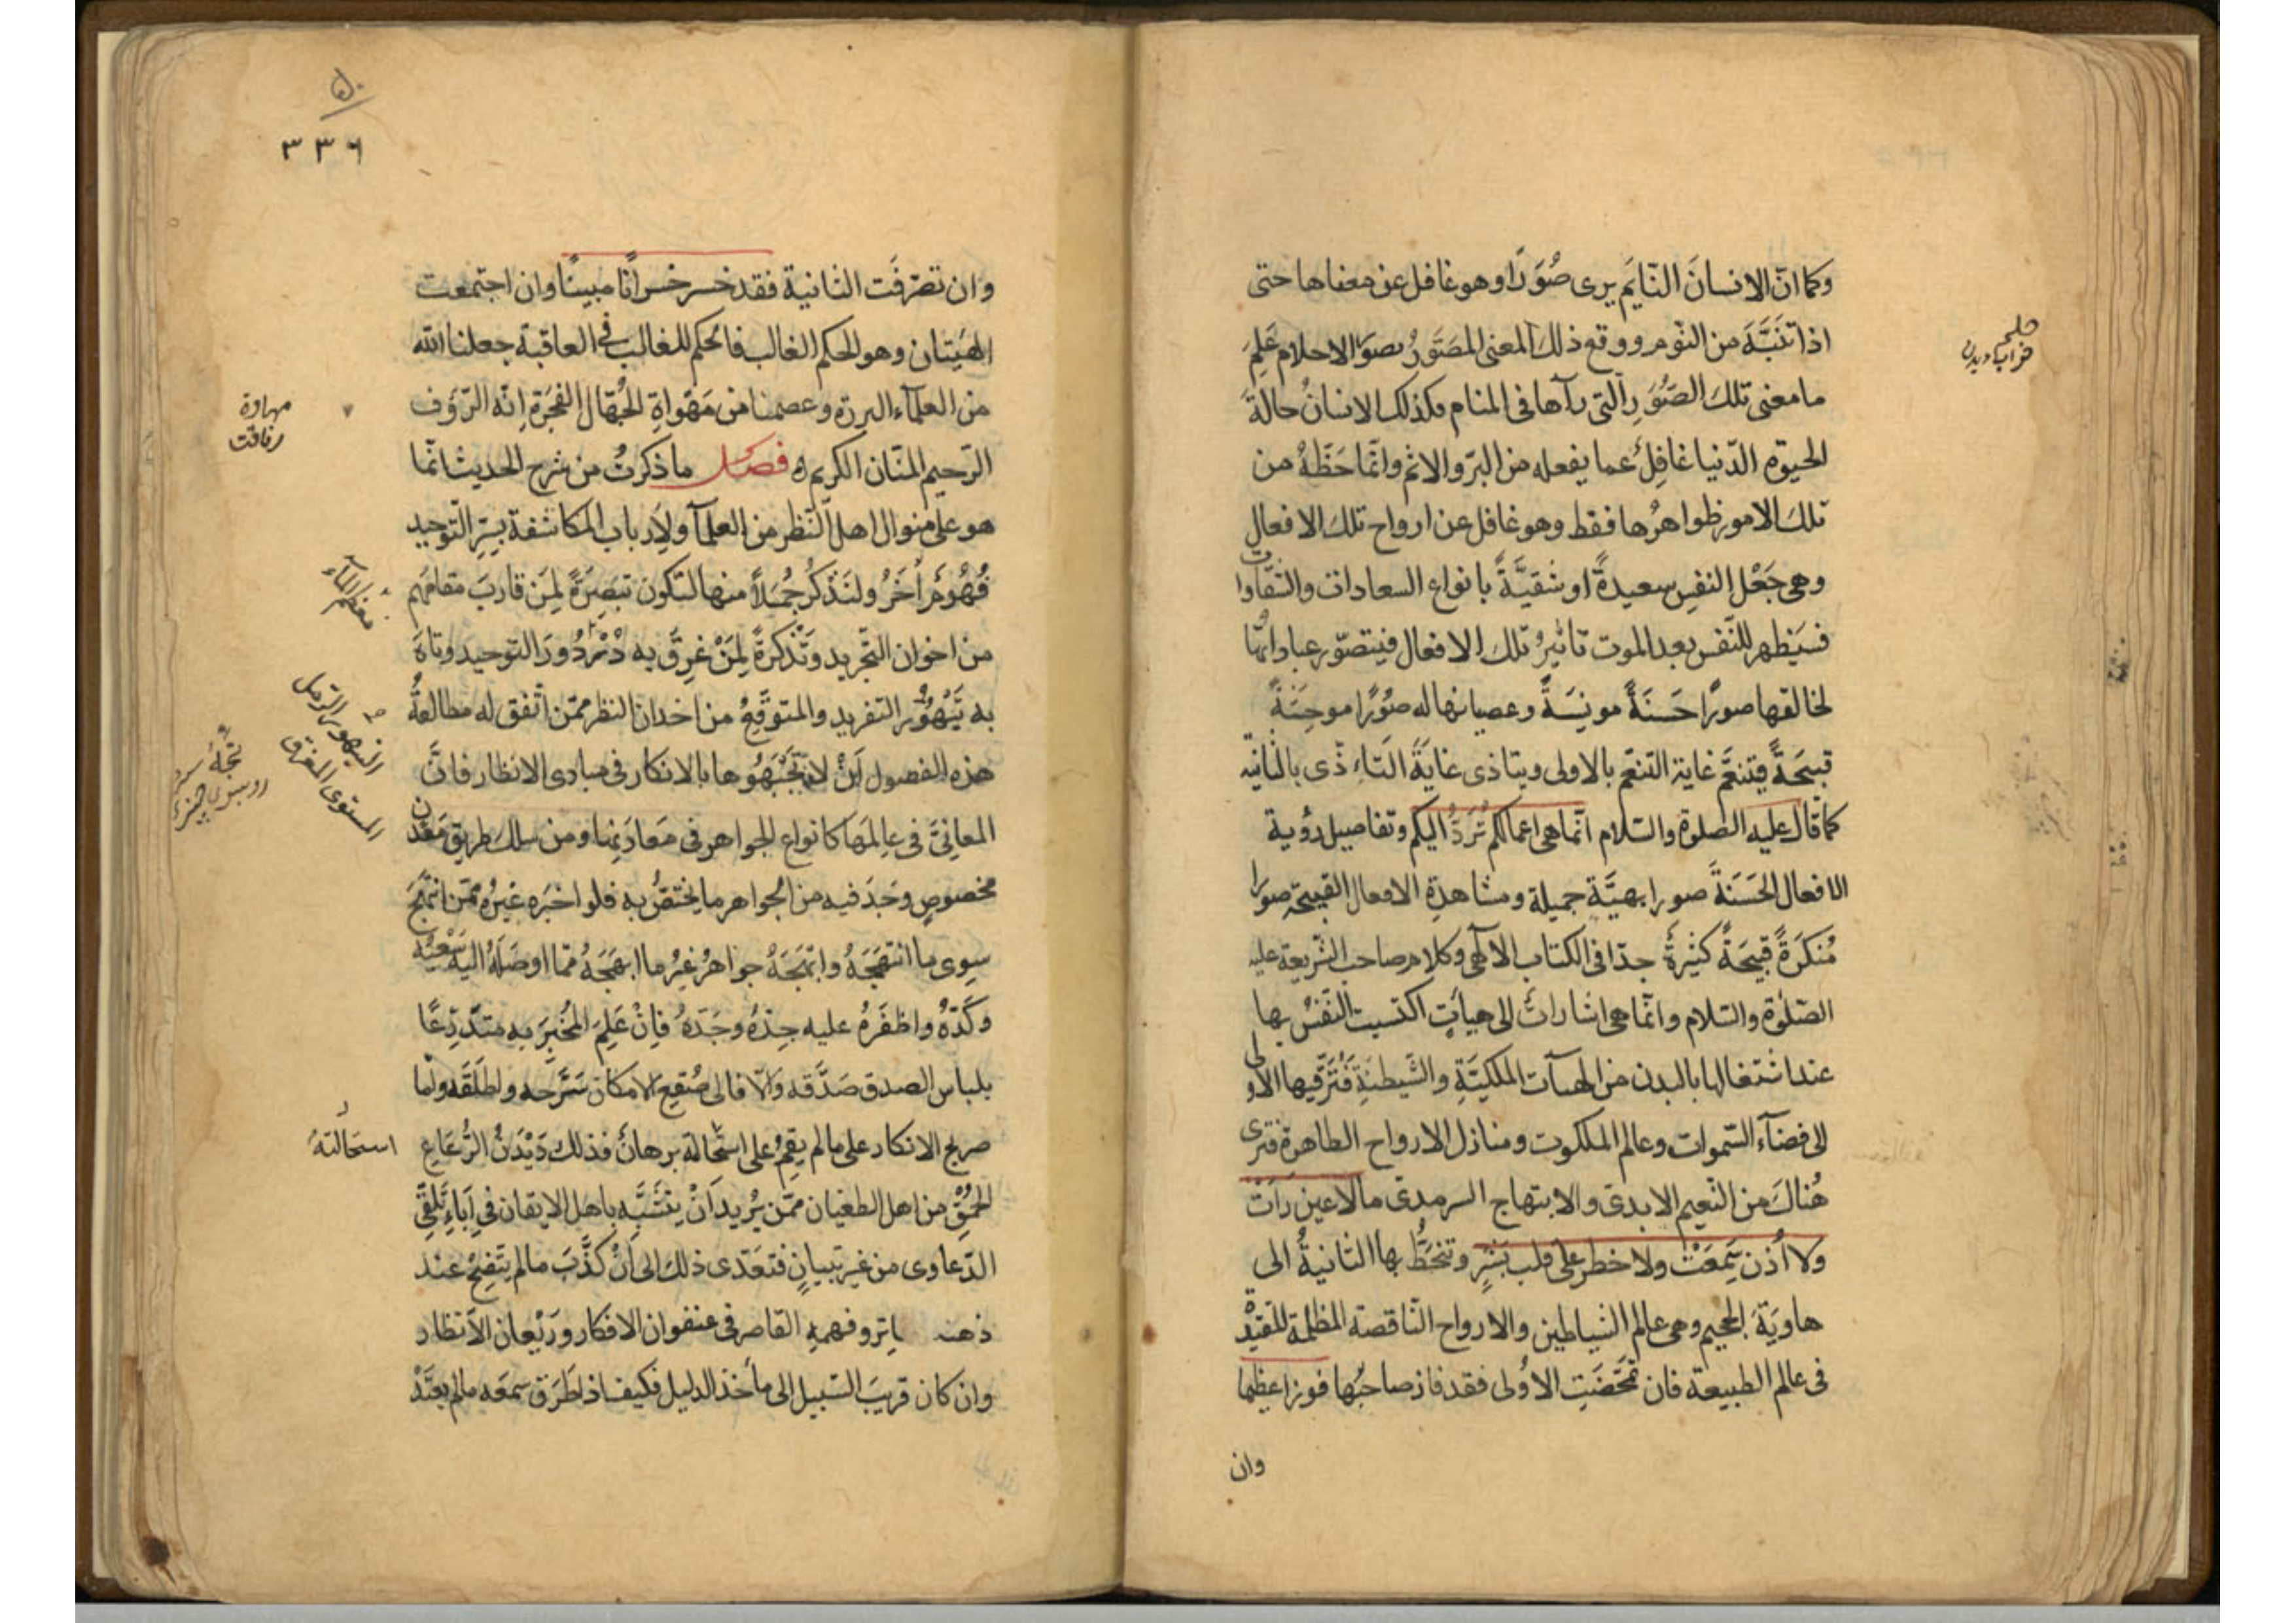 وكما ان الانسان النايم يرى صورا وهو غافل عن معناها حتى
اذا تنبه من النوم ووقع ذلك المعنى المصور بصور الاحلام علم
ما معنى تلك الصور التى رآها فى المنام وكذلك الانسان حالة
الحيوة الدنيا غافل عما يفعله من البر والاثم وانما حظه من
تلك الامور ظواهرها فقط وهو غافل عن ارواح تلك الافعال
وهى جعل النفس سعيدة او شقية بانواع السعادات والشقاوات
فسيظهر للنفس بعد الموت تاثير تلك الافعال فيتصور عباداتها
لخالقها صورا حسنة مونسة وعصيانها له صورا موحشة
قبيحة فتنعم غاية التنعم بالاولى ويتاذى غاية التاذى بالثانية
كما قال عليه الصلوة والسلام انما هى اعمالكم ترد اليكم وتفاصيل رؤية
الافعال الحسنة صورا بهية جميلة ومشاهدة الافعال القبيحة صورا
منكرة قبيحة كثيرة جدا فى الكتاب الالهى وكلام صاحب الشريعة عليه
الصلوة والسلام وانما هى اشارات الى هيات اكتسبت النفس بها
عند اشتغالها بالبدن من الهيآت الملكية والشيطنية فترقيها الاولى
الى فضآء السموات وعالم الملكوت ومنازل الارواح الطاهرة فترى
هناك من النعيم الابدى والابتهاج السرمدى ما لا عين رات
ولا اذن سمعت ولا خطر على قلب بشر وتنحط بها الثانية الى
هاوية الجحيم وهى عالم الشياطين والارواح الناقصة المظلمة المقيدة
فى عالم الطبيعة فان تمحضت الاولى فقد فاز صاحبها فوزا عظيما
وان
حلم
خواب ديدن
۵۰
٣٣٦
وان تصرفت الثانية فقد خسر خسرانا مبينا وان اجتمعت
الهيتان وهو الحكم الغالب فالحكم للغالب فى العاقبة جعلنا الله
من العلمآء البررة وعصمنا من مهواة الجهال الفجرة انه الرؤف
الرحيم المنان الكريم فصل ما ذكرت من شرح الحديث انما
هو على منوال اهل النظر من العلمآ ولارباب المكاشفة بسر التوحيد
فهوم اخر ولنذكر جملا منها لتكون تبصرة لمن قارب مقامهم
من اخوان التجريد وتذكرة لمن غرق به دردور التوحيد وتاه
به تيهور التفريد والمتوقع من اخدان النظر ممن اتفق له مطالعة
هذه الفصول ان لا يجبهوها بالانكار فى مبادى الانظار فان
المعانى فى عالمها كانواع الجواهر فى معادنها ومن سلك طريق معدن
مخصوص وجد فيه من الجواهر ما يختص به فلو اخبره غيره ممن انتهج
سوى ما انتهجه وابتهجه جواهر غير ما ابهجه مما اوصله اليه سعيه
وكده واظفره عليه جده وجده فان علم المخبر به متدرعا
بلباس الصدق صدقه والا فالى صقع الامكان سرحه واطلقه واما
صريح الانكار على ما لم يقم على استحالة برهان فذلك ديدن الرعاع
الحمق من اهل الطغيان ممن يريد ان يتشبه باهل الايقان فى اباء تلقى
الدعاوى من غير تبيان فتعدى ذلك الى ان كذب ما لم يتضح عند
ذهنه الباتر وفهمه القاصر فى عنفوان الافكار وريعان الانظار
وان كان قريب السبيل الى مأخذ الدليل فكيف اذا طرق سمعه ما لم يعتد
مهاوة
التيهور الرمل
المستوى
استحالته